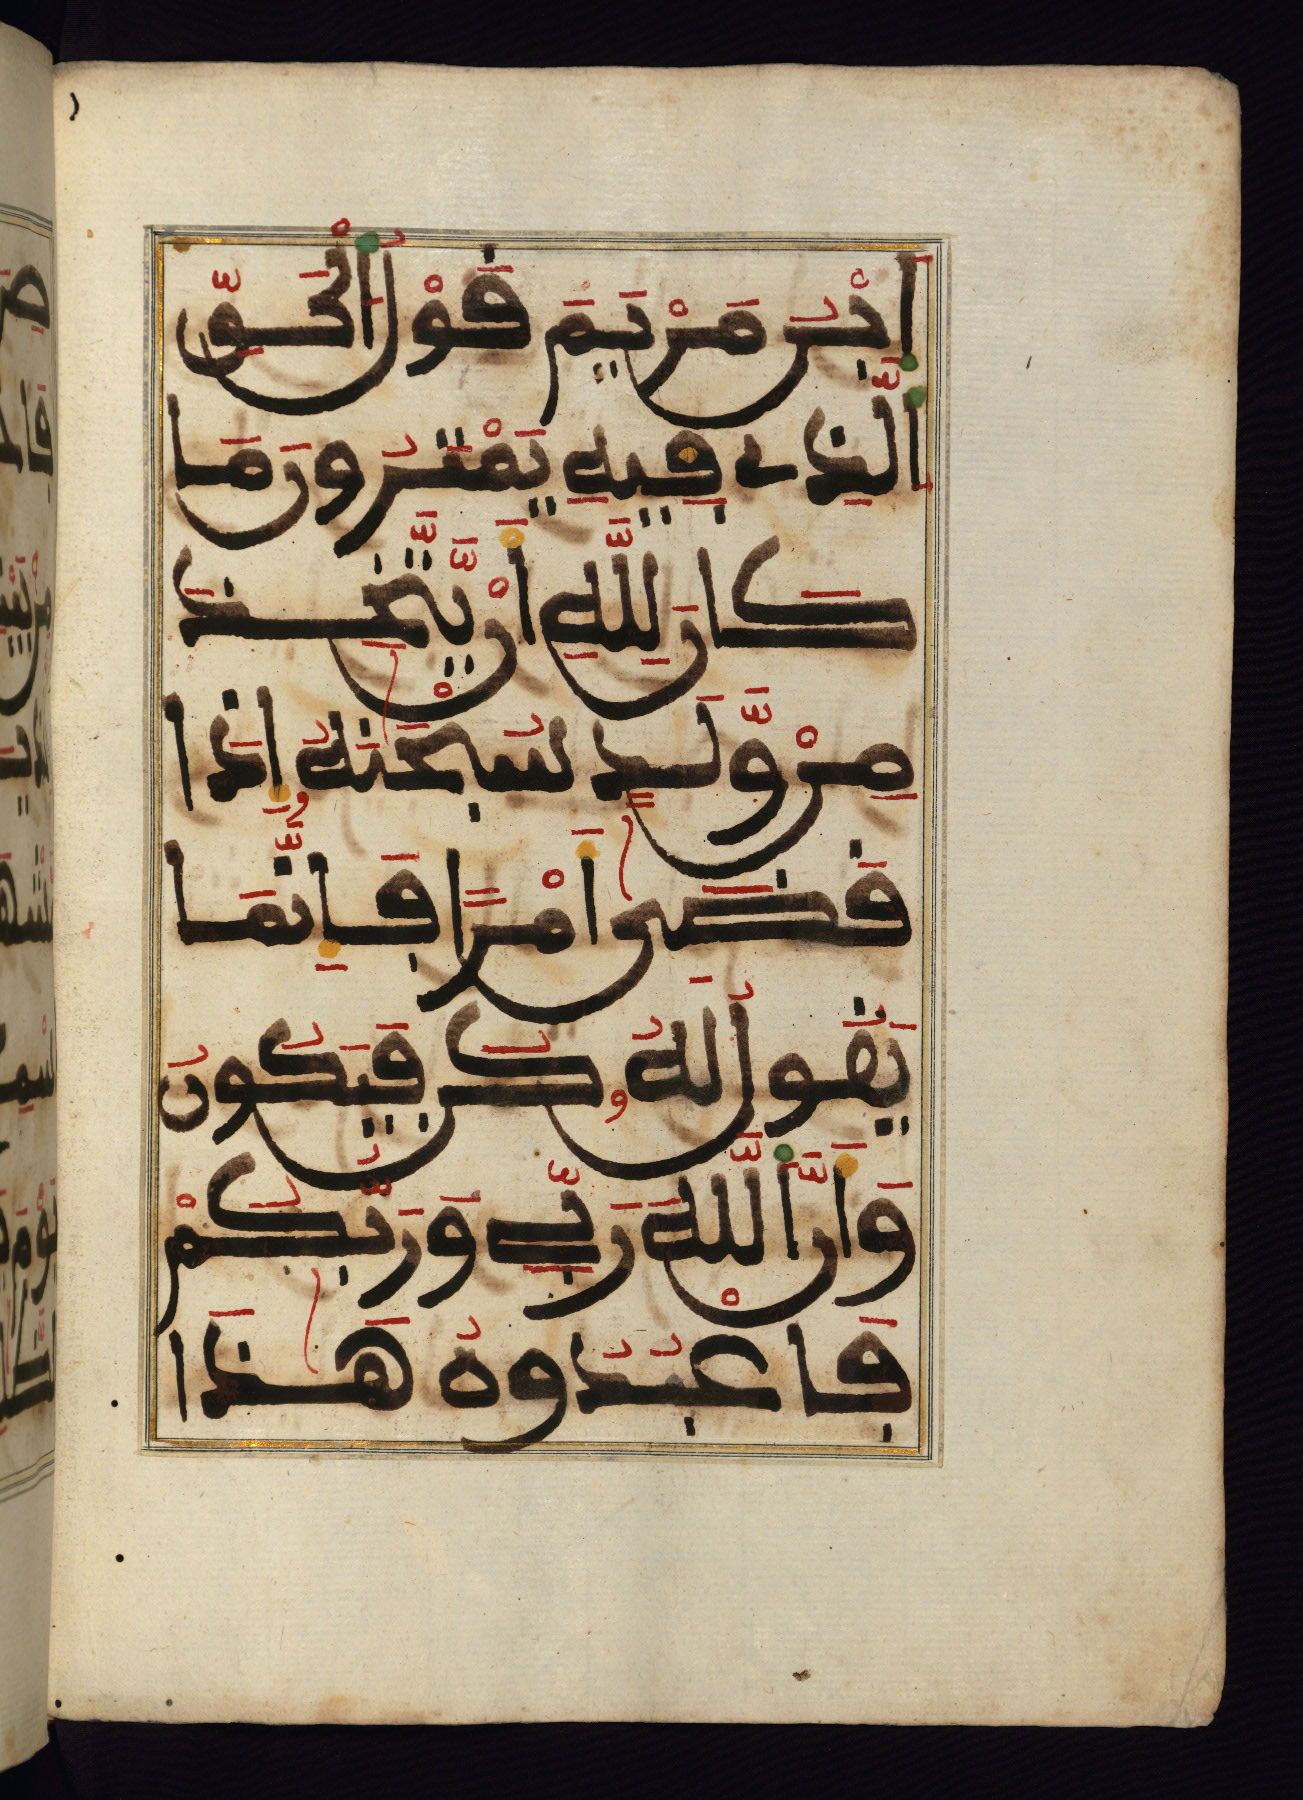 اَبْنُ مَرْيَمَ قَوْلُ اَلْحَقِّ
اَلَّذِي فِيهِ يَمْتَرُونَ مَا
كَانَ لِلَّهِ أَنْ يَّتَّخِذَ
مِنْ وَّلَدٍ سُبْحَٰنَهُ إِذَا
قَضَىٰ أَمْرًا فَإِنَّمَا
يَقُولُ لَهُ كُن فَيَكُونُ
وَأَنَّ اَللَّهَ رَبِّي وَرَبُّكُمْ
فَاعْبُدُوهُ هَٰذَا